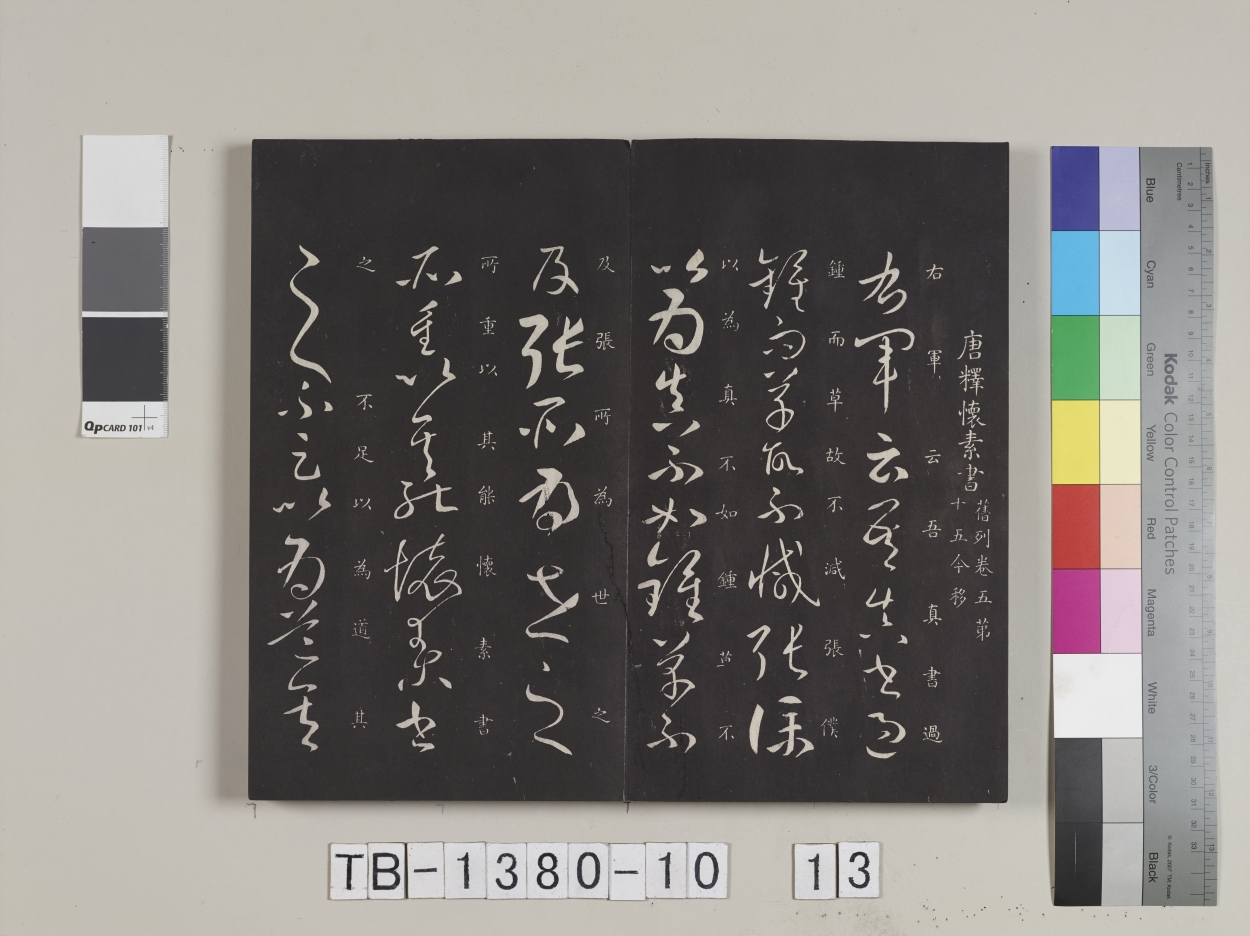 唐釋懷素書
舊列卷五第
十五今移
右軍云吾真書過
右軍云吾真書過
鍾而草故不減張僕
鍾而草故不減張僕
以為真不如鍾草不
以為真不如鍾草不
及張所為世之
及張所為世之
所重以其能懷素書
所重以其能懷素書
之不足以為道其
之不足以為道其
QPCARD 101 v4
Kodak Color Control Patches
Inches
Centimetres
Blue
Cyan
Green
Yellow
Red
Magenta
White
3/Color
Black
TB-1380-10 13